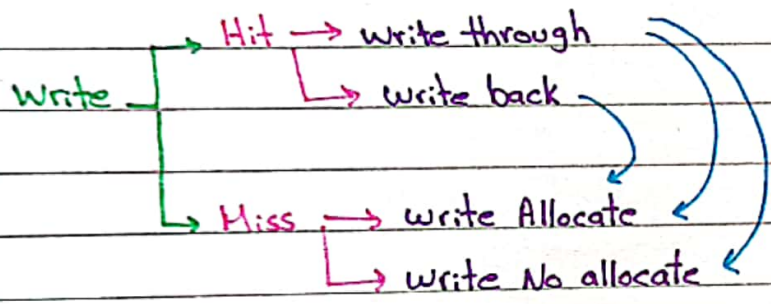 Hit → write through
write
write back
Miss → write Allocate
write No allocate